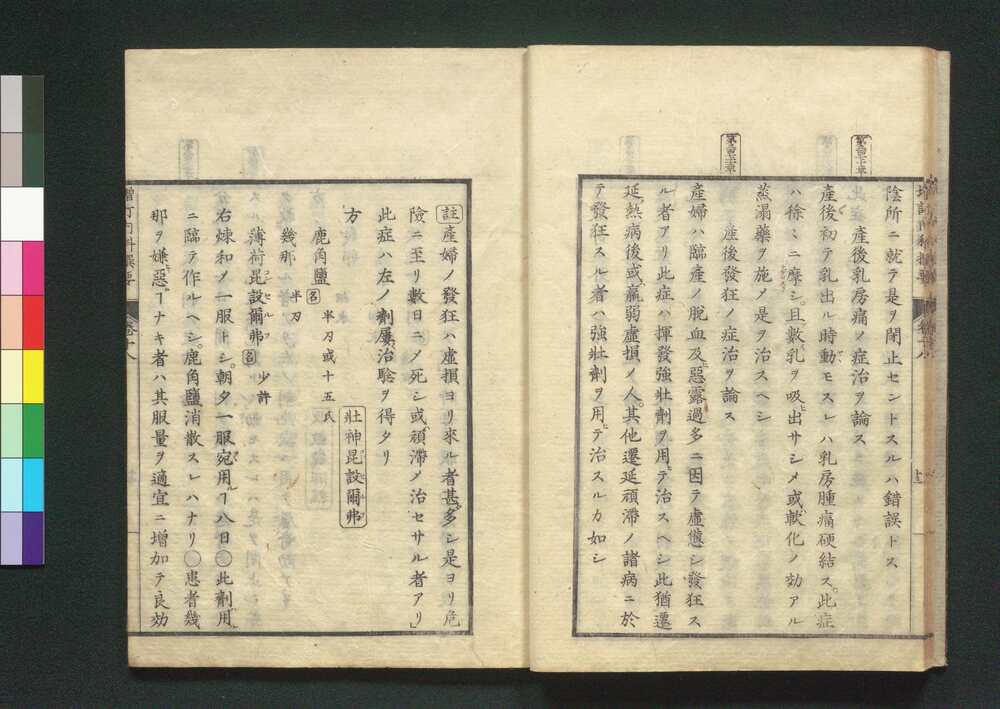 陰所ニ就テ是ヲ閉止セントスルハ錯誤トス
産後乳房痛ノ症治ヲ論ス
産後初テ乳出ル時動モスレハ乳房腫痛硬結ス。此症
ハ徐々ニ摩シ。且數乳ヲ吸出サシメ或軟化ノ効アル
蒸溻藥ヲ施〆是ヲ治スヘシ
産後發狂ノ症治ヲ論ス
産婦ハ臨産ノ脱血及惡露過多ニ因テ虚憊シ發狂ス
ル者アリ此症ハ揮發強壯劑ヲ用テ治スヘシ此猶遷
延熱病後或羸弱虚損ノ人。其他遷延頑滯ノ諸病ニ於
テ發狂スル者ハ強壯劑ヲ用テ治スルカ如シ
註 産婦ノ發狂ハ虚損ヨリ來ル者甚多シ是ヨリ危
險ニ至リ數日ニ〆死シ或頑滯ノ治セサル者アリ
此症ハ左ノ劑屢治驗ヲ得タリ
方 壯神昆設爾弗
鹿角鹽 名 半刃或十五氏
幾那 半刃
薄荷昆設爾弗 名 少許
右煉和〆一服トシ。朝夕一服宛用ヿ八日〇此劑用
ニ臨テ作ルヘシ。鹿角鹽消散スレハナリ〇患者幾
那ヲ嫌惡ヿナキ者ハ其服量ヲ適宜ニ増加テ良効